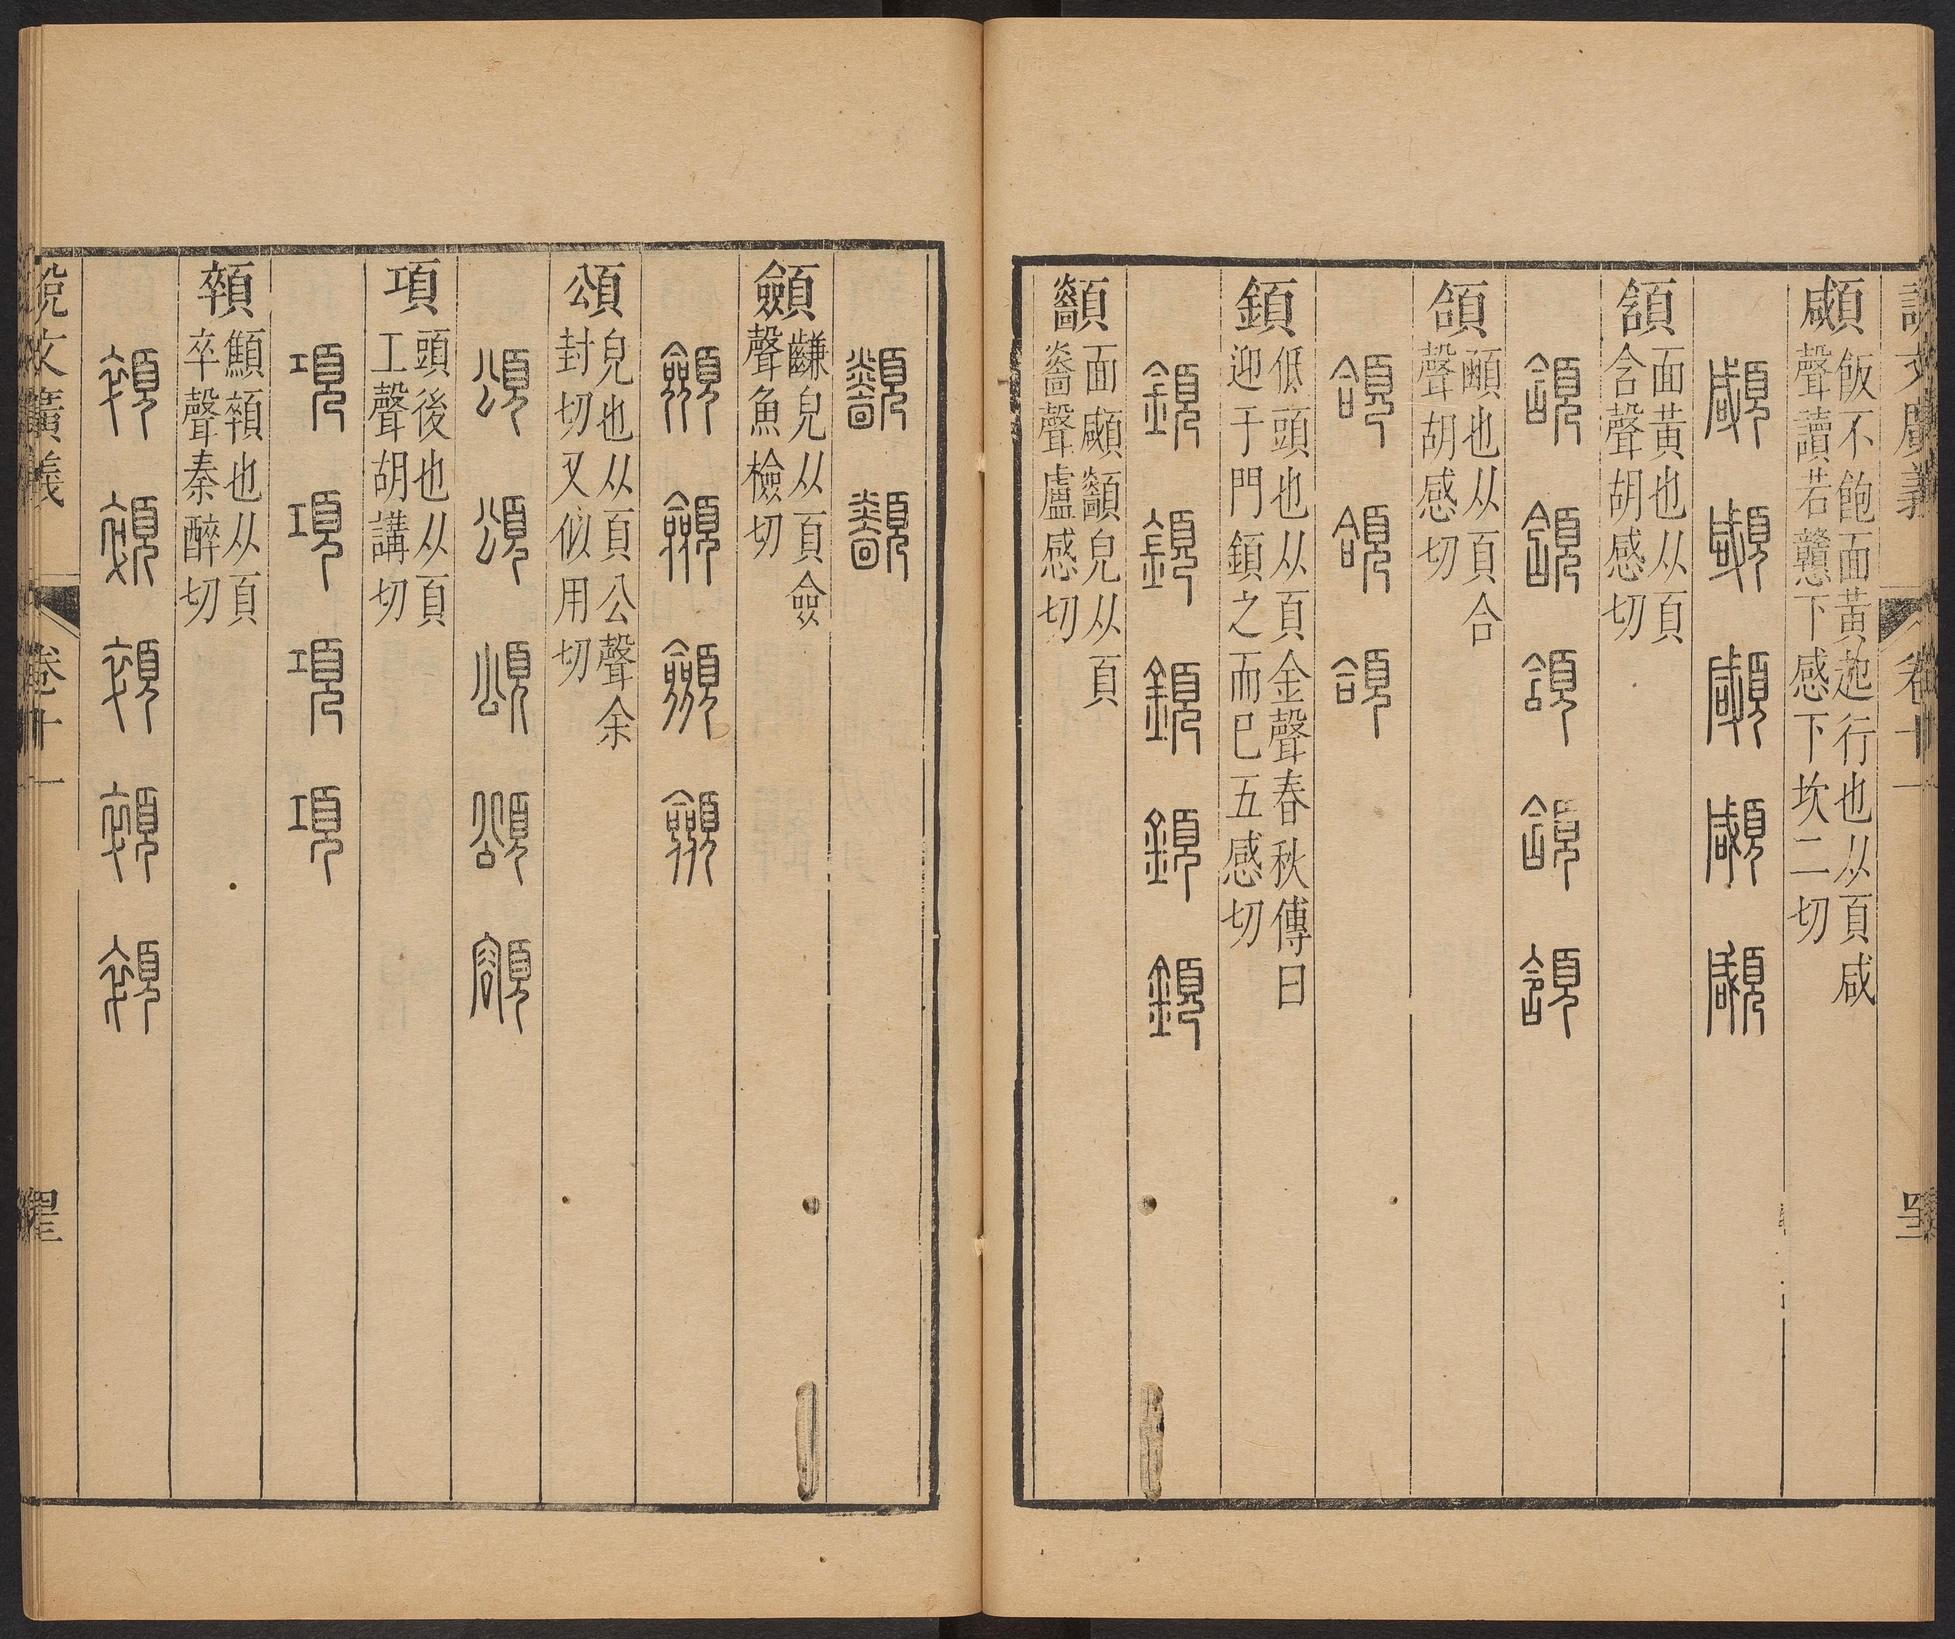 說文廣義
卷十一
顑 飯不飽面黃起行也从頁咸
聲讀若戇下感下坎二切
顑顑顑顑顑
頷 面黃也从頁
含聲胡感切
頷頷頷頷頷
頜 𩒺也从頁合
聲胡感切
頜頜頜
顉 低頭也从頁金聲春秋傳曰
迎于門顉之而巳五感切
顉顉顉顉顉
面顑
皃从頁
聲盧感切
顩 𪙊皃从頁僉
聲魚檢切
顩顩顩顩
頌 皃也从頁公聲余
封切又似用切
頌頌頌頌額
項 頭後也从頁
工聲胡講切
項項項項
顇 顦顇也从頁
卒聲秦醉切
顇顇顇顇顇
說文廣義
卷十一